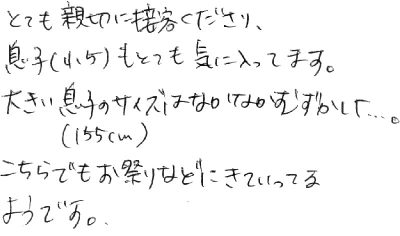 とても親切に接客くださり、
息子(小5)もとても気に入ってます。
大きい息子のサイズはなかなかむずかして…。
(155cm)
こちらでもお祭りなどにきていってる
ようです。